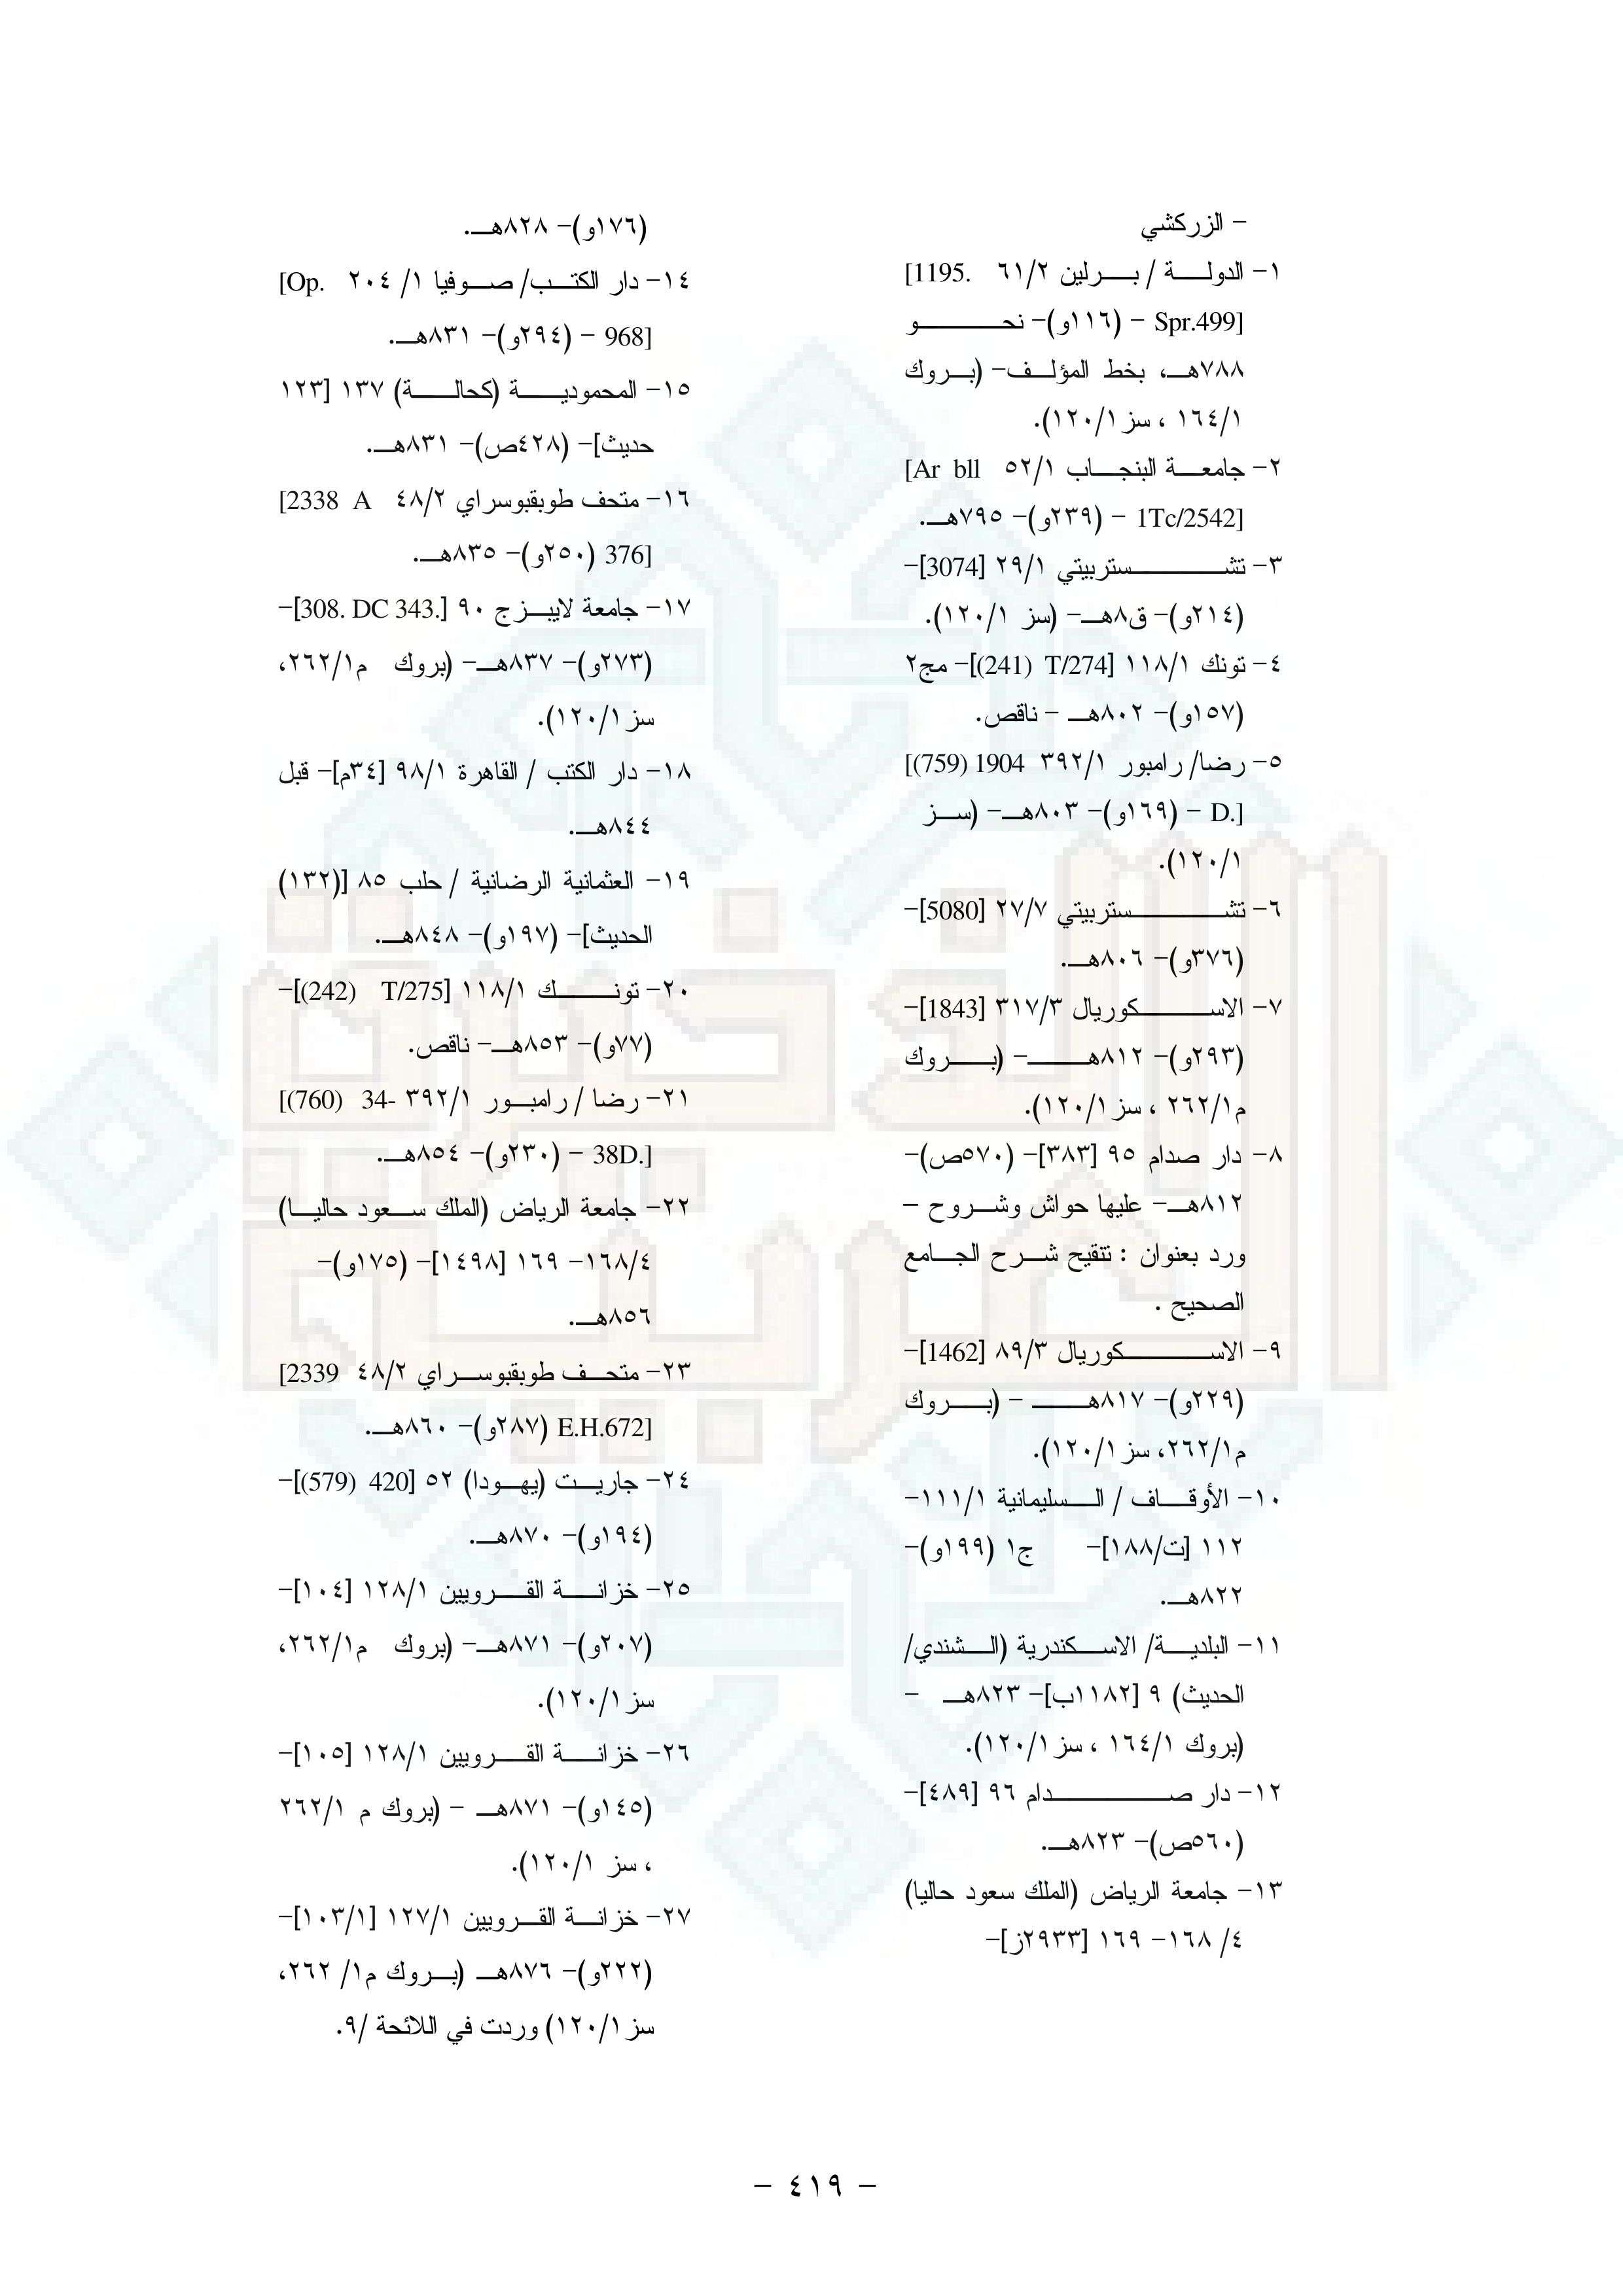 - الزركشي
١- الدولة / برلين ٦١/٢ [1195.
Spr.499] - (١١٦و)- نحو
٧٨٨هـ، بخط المؤلف- (بروك
١٦٤/١ ، سز ١٢٠/١).
٢- جامعة البنجاب ٥٢/١ [Ar bll
1Tc/2542] - (٢٣٩و)- ٧٩٥هـ.
٣- تشستربيتي ٢٩/١ [3074]-
(٢١٤و)- ق٨هـ- (سز ١٢٠/١).
٤- تونك ١١٨/١ [T/274 (241)]- مج٢
(١٥٧و)- ٨٠٢هـ - ناقص.
٥- رضا/ رامبور ٣٩٢/١ [(759) 1904
D.] - (١٦٩و)- ٨٠٣هـ- (سز
١٢٠/١).
٦- تشستربيتي ٢٧/٧ [5080]-
(٣٧٦و)- ٨٠٦هـ.
٧- الاسكوريال ٣١٧/٣ [1843]-
(٢٩٣و)- ٨١٢هـ- (بروك
م٢٦٢/١ ، سز ١٢٠/١).
٨- دار صدام ٩٥ [٣٨٣]- (٥٧٠ص)-
٨١٢هـ- عليها حواش وشروح –
ورد بعنوان : تنقيح شرح الجامع
الصحيح .
٩- الاسكوريال ٨٩/٣ [1462]-
(٢٢٩و)- ٨١٧هـ - (بروك
م٢٦٢/١، سز ١٢٠/١).
١٠- الأوقاف / السليمانية ١١١/١-
١١٢ [ت/١٨٨]- ج١ (١٩٩و)-
٨٢٢هـ.
١١- البلدية/ الاسكندرية (الشندي/
الحديث) ٩ [١١٨٢ب]- ٨٢٣هـ -
(بروك ١٦٤/١ ، سز ١٢٠/١).
١٢- دار صدام ٩٦ [٤٨٩]-
(٥٦٠ص)- ٨٢٣هـ.
١٣- جامعة الرياض (الملك سعود حاليا)
٤/ ١٦٨- ١٦٩ [٢٩٣٣ز]-
(١٧٦و)- ٨٢٨هـ.
١٤- دار الكتب/ صوفيا ١/ ٢٠٤ [Op.
968] - (٢٩٤و)- ٨٣١هـ.
١٥- المحمودية (كحالة) ١٣٧ [١٢٣
حديث]- (٤٢٨ص)- ٨٣١هـ.
١٦- متحف طوبقبوسراي ٤٨/٢ [2338 A
376] (٢٥٠و)- ٨٣٥هـ.
١٧- جامعة لايبزج ٩٠ [308. DC 343.]-
(٢٧٣و)- ٨٣٧هـ- (بروك م٢٦٢/١،
سز ١٢٠/١).
١٨- دار الكتب / القاهرة ٩٨/١ [٣٤م]- قبل
٨٤٤هـ.
١٩- العثمانية الرضانية / حلب ٨٥ [(١٣٢)
الحديث]- (١٩٧و)- ٨٤٨هـ.
٢٠- تونك ١١٨/١ [T/275 (242)]-
(٧٧و)- ٨٥٣هـ- ناقص.
٢١- رضا / رامبور ٣٩٢/١ [(760) 34-
38D.] - (٢٣٠و)- ٨٥٤هـ.
٢٢- جامعة الرياض (الملك سعود حاليا)
١٦٨/٤- ١٦٩ [١٤٩٨]- (١٧٥و)-
٨٥٦هـ.
٢٣- متحف طوبقبوسراي ٤٨/٢ [2339
E.H.672] (٢٨٧و)- ٨٦٠هـ.
٢٤- جاريت (يهودا) ٥٢ [420 (579)]-
(١٩٤و)- ٨٧٠هـ.
٢٥- خزانة القرويين ١٢٨/١ [١٠٤]-
(٢٠٧و)- ٨٧١هـ- (بروك م٢٦٢/١،
سز ١٢٠/١).
٢٦- خزانة القرويين ١٢٨/١ [١٠٥]-
(١٤٥و)- ٨٧١هـ - (بروك م ٢٦٢/١
، سز ١٢٠/١).
٢٧- خزانة القرويين ١٢٧/١ [١٠٣/١]-
(٢٢٢و)- ٨٧٦هـ (بروك م١/ ٢٦٢،
سز ١٢٠/١) وردت في اللائحة /٩.
- ٤١٩ -